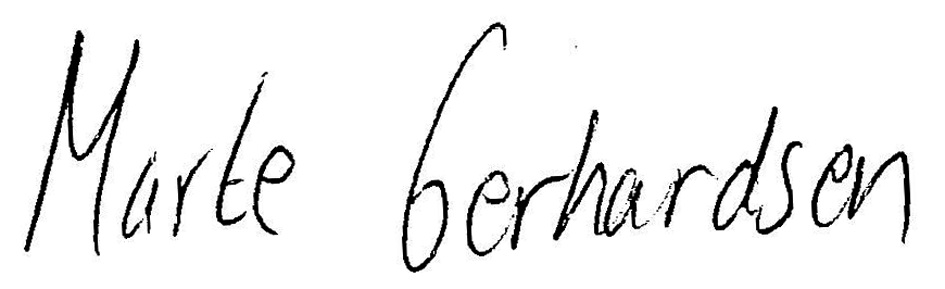 Marte Gerhardsen